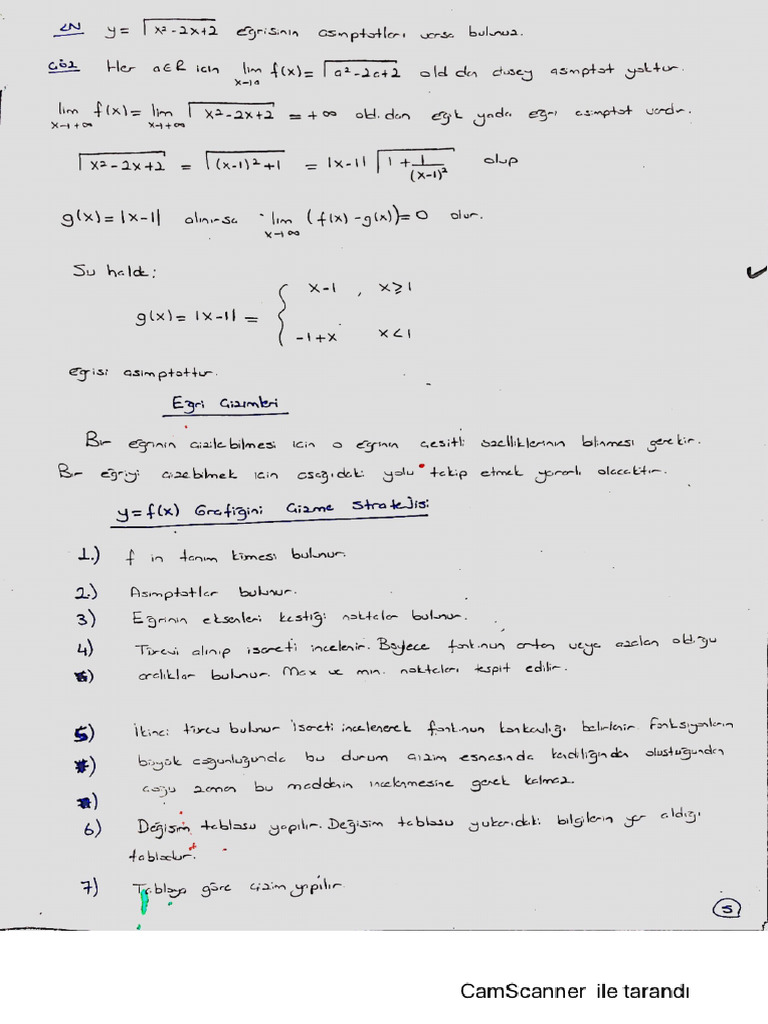 ÖN y = √(x²-2x+2) eğrisinin asimptotları varsa bulunuz.
Çöz Her a∈R için lim x→a f(x) = √(a²-2a+2) old dan düşey asimptot yoktur.
lim x→+∞ f(x) = lim x→+∞ √(x²-2x+2) = +∞ old.dan eğik yada eğri asimptot vardır.
√(x²-2x+2) = √((x-1)²+1) = |x-1| √(1+1/(x-1)²) olup
g(x) = |x-1| alınırsa lim x→∞ (f(x)-g(x)) = 0 olur.
Şu halde:
g(x) = |x-1| = { x-1 , x≥1
-1+x x<1
eğrisi asimptottur.
Eğri Çizimleri
Bir eğrinin çizilebilmesi için o eğrinin çeşitli özelliklerinin bilinmesi gerekir.
Bir eğriyi çizebilmek için aşağıdaki yolu takip etmek yararlı olacaktır.
y=f(x) Grafiğini Çizme Stratejisi
1.) f in tanım kümesi bulunur.
2.) Asimptotlar bulunur.
3) Eğrinin eksenleri kestiği noktalar bulunur.
4) Türevi alınıp işareti incelenir. Böylece fonk.nun artan veya azalan olduğu
aralıklar bulunur. Max ve min. noktaları tespit edilir.
5) İkinci türev bulunur işareti incelenerek fonk.nun konkavlığı belirlenir. Fonksiyonların
büyük çoğunluğunda bu durum çizim esnasında kendiliğinden oluştuğundan
çoğu zaman bu maddenin incelenmesine gerek kalmaz.
6) Değişim tablosu yapılır. Değişim tablosu yukarıdaki bilgilerin yer aldığı
tablodur.
7) Tabloya göre çizim yapılır.
5
CamScanner ile tarandı